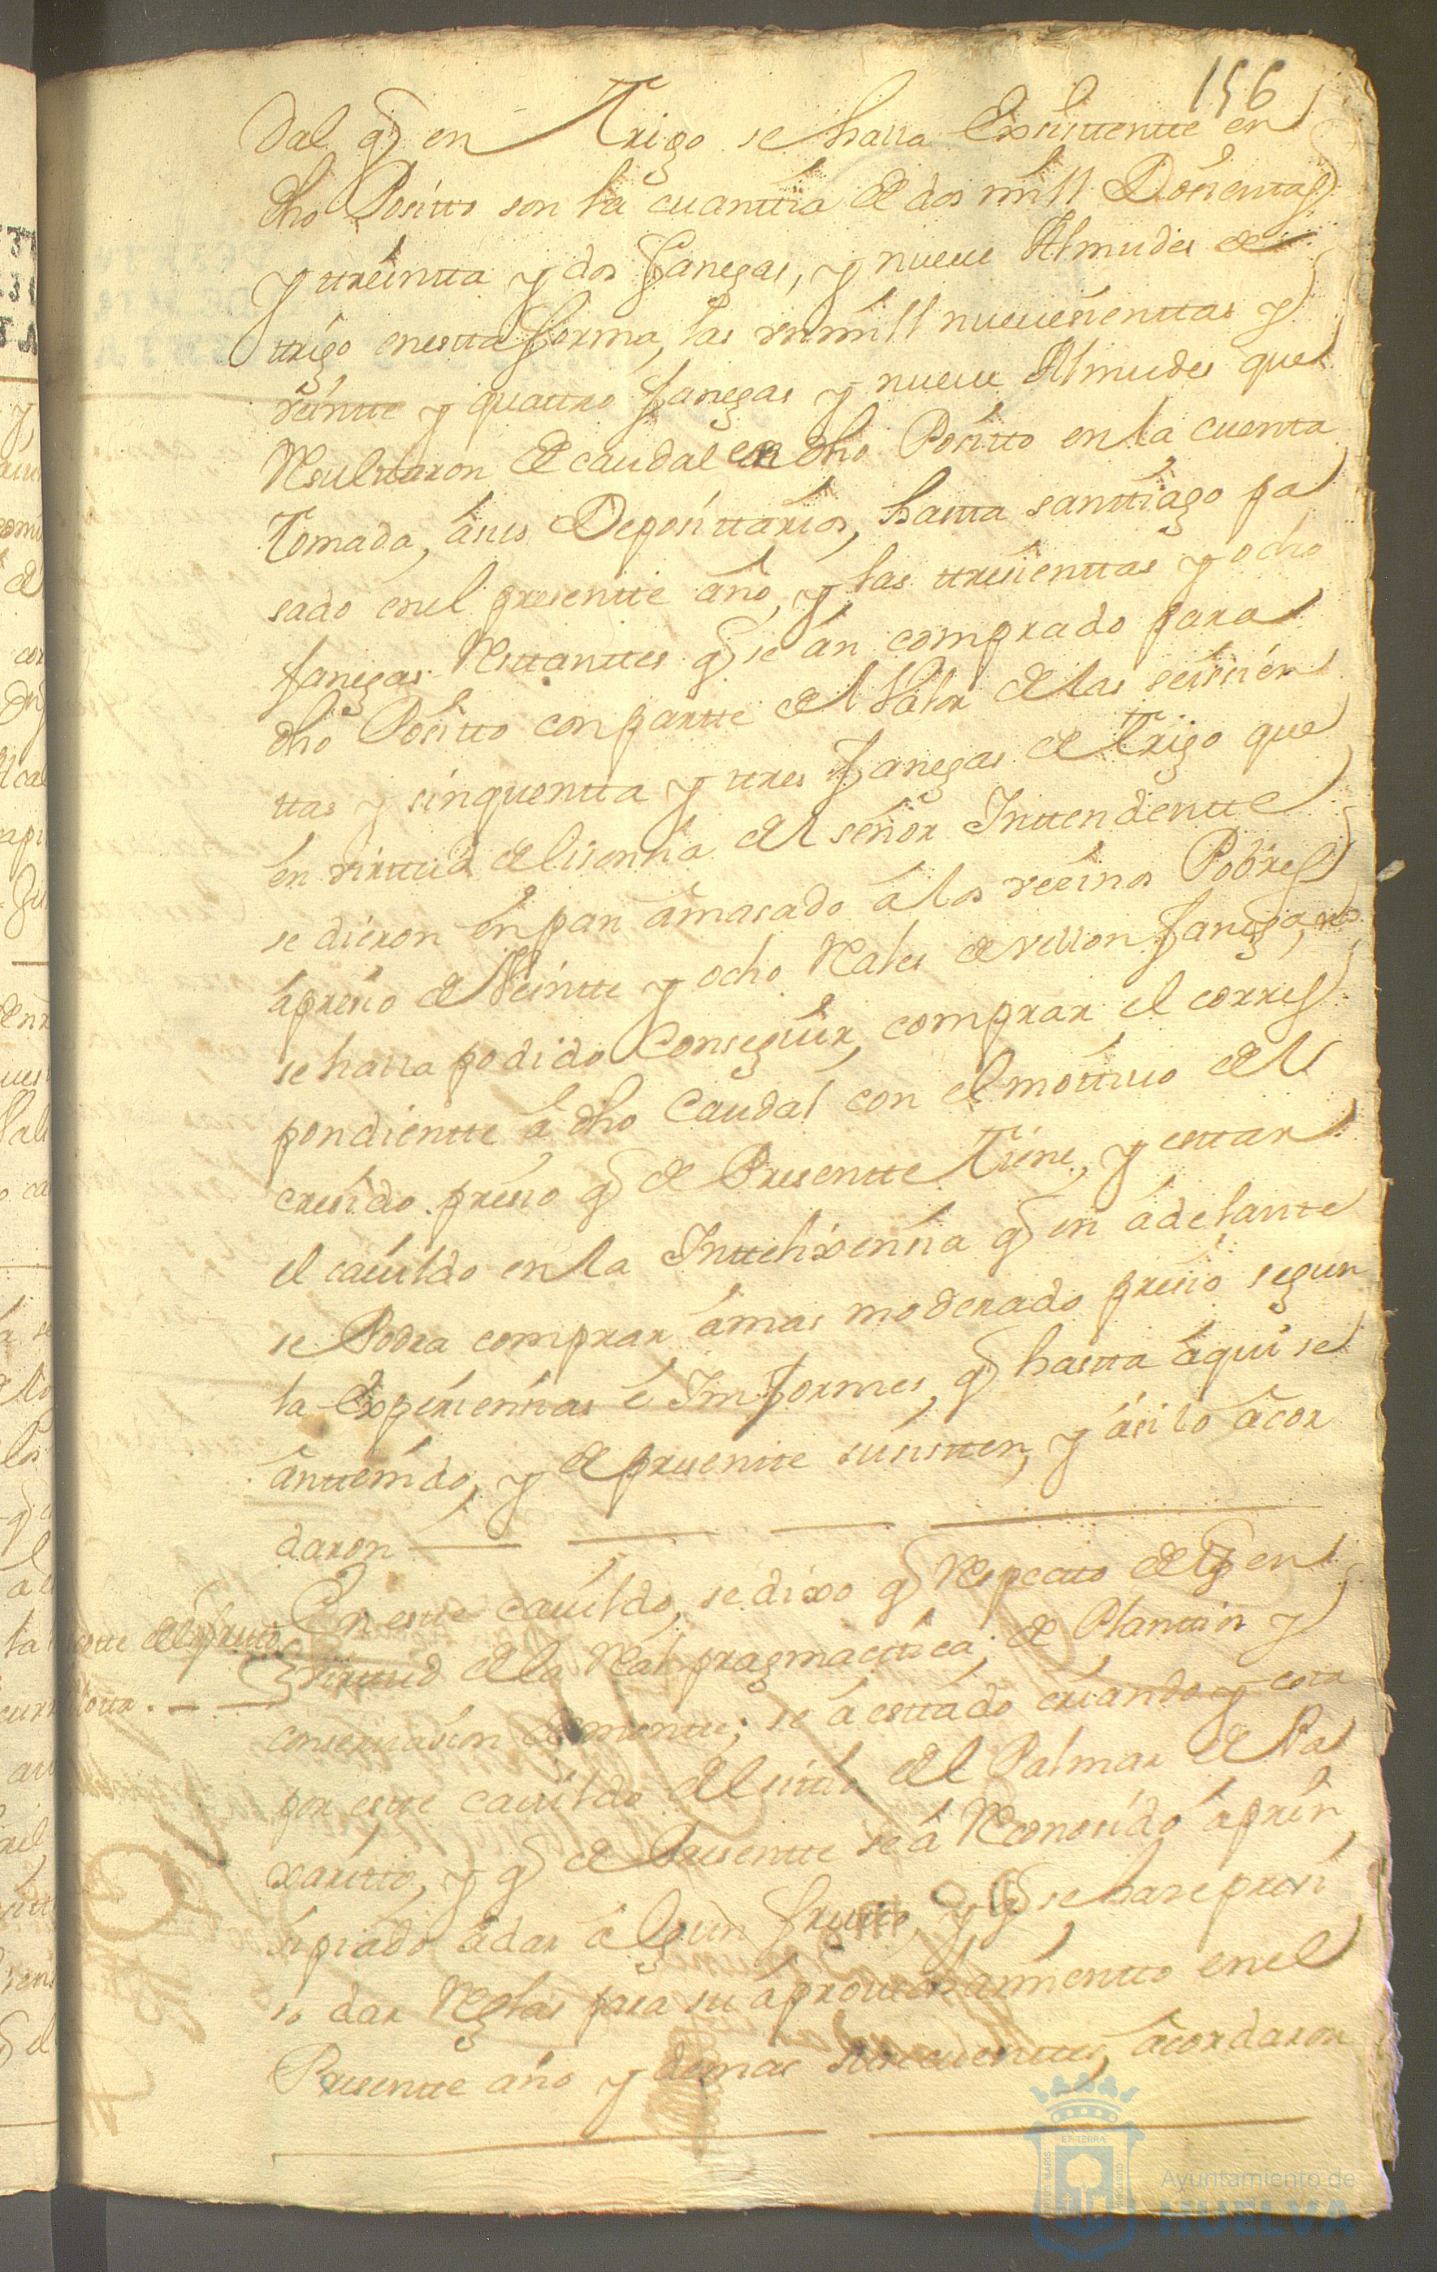 156
dal q̃ en Trigo se halla Existtentte en
dho Positto son la cuanttia de dos mill Dosientas
y ttreintta y dos fanegas, y nueue Almudes de
ttrigo enestta forma, las vn mill nueuesienttas y
veintte y quattro fanegas y nueue Almudes que
Resulttaron de caudal en dho Positto en la cuenta
Tomada, ásus Deposittarios, hastta santtiago pa
sado enel presentte año, y las ttresienttas y ocho
fanegas Resttanttes q̃ se án comprado para
dho Positto con partte del Valor de las seissien
ttas y sinquentta y ttres fanegas de Trigo que
en virttud de lisensia del señor Inttendentte
se dieron en pan amasado á los veeinos Pobres
ápresio de Veintte y ocho Rales de vellon fanega, no
se halla podido Conseguir, comprar el corres
pondientte á dho Caudal con el mottiuo del
cresido presio q̃ de Presentte Tiene, y esttar
el cauildo en la Inttelixensia q̃ en ádelante
se Podra comprar ámas moderado presio segun
la Experiensias é Imformes, q̃ hastta áqui se
án ttenido, y de presentte susistten, y ási lo ácor
daron
En estte cauildo, se dixo q̃ Respecto de q̃ en
virttud de la Real pragmacttica, de Planttin y
conseruasion de montte, se á esttado criando y
por estte cauildo el sittio del Palmar de Pa
xaritto, y q̃ de Presentte se á Reconosido áprin
sipiado ádar álgun frutto, y q̃ se hase presi
so dar Reglas para su áprouechamientto en el
Presentte año y demas subsecuenttes, ácordaron
Ayuntamiento de
HUELVA